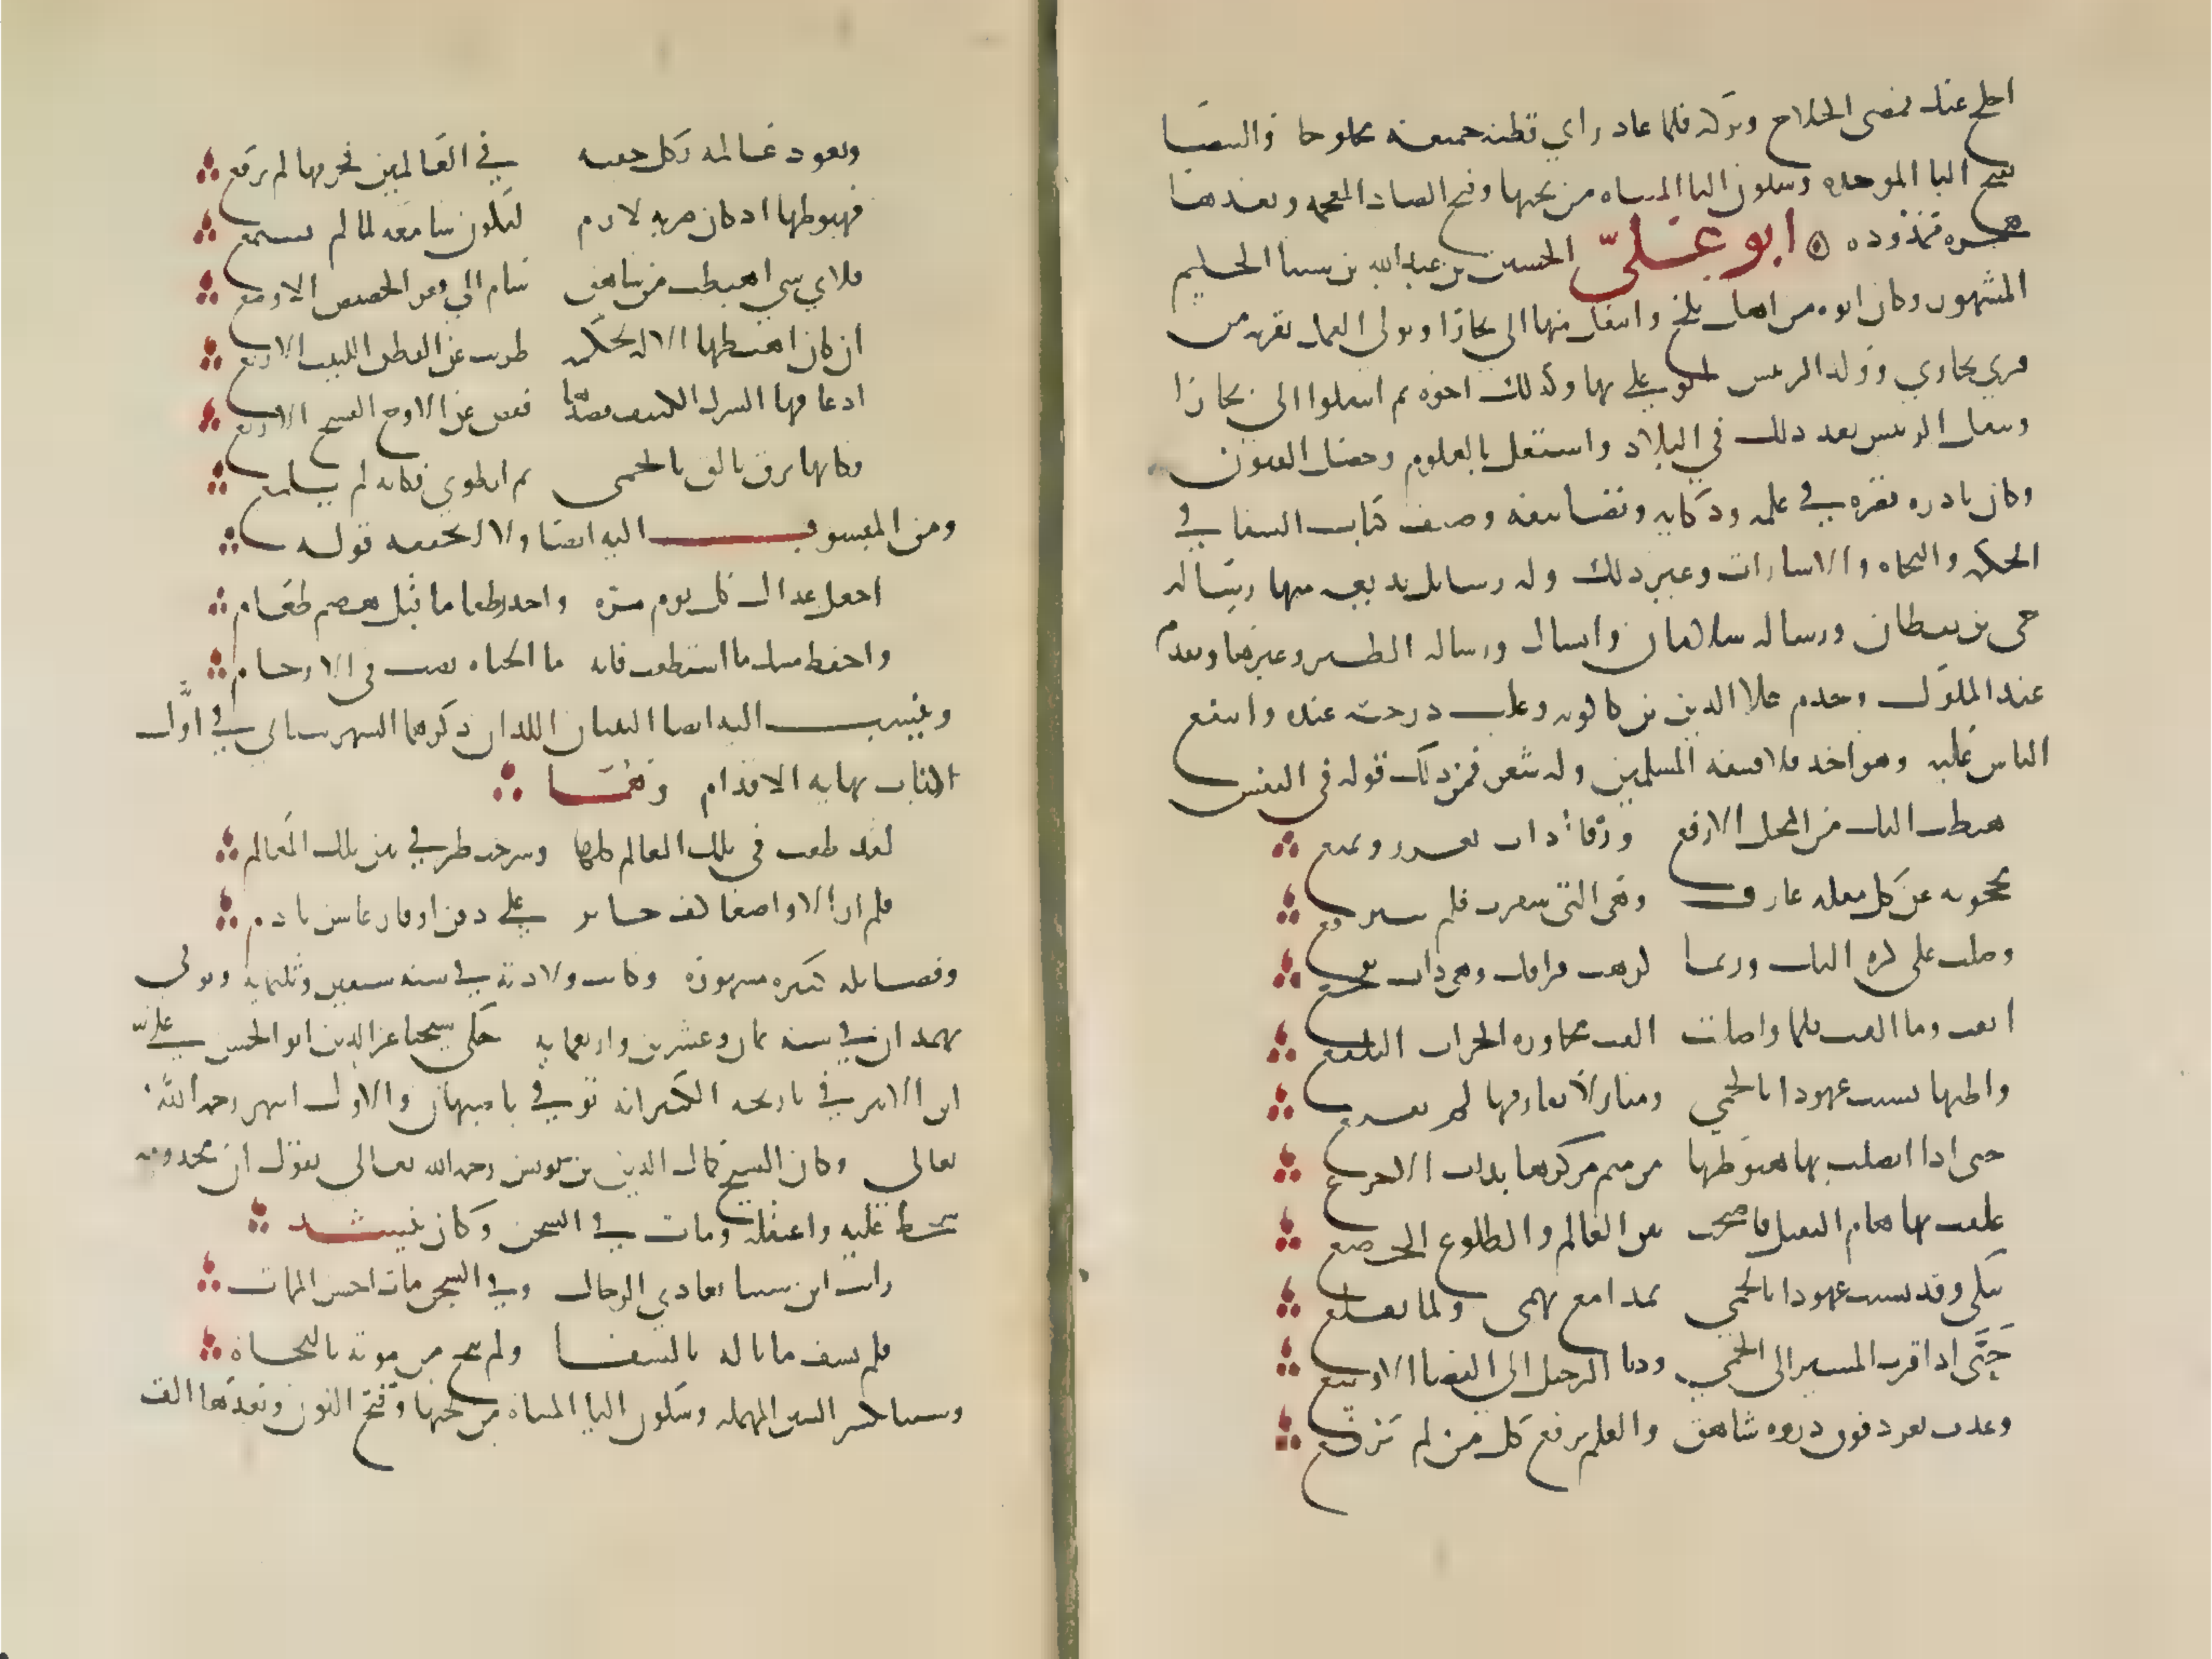 احلج عنك فمضى الحلاج وتركه فلما عاد راي قطنه جميعه محلوجا والبيضا
بفتح البا الموحده وسكون اليا المثناه من تحتها وفتح الضاد المعجمه وبعدها
همزه ممدوده ابو علي الحسين بن عبد الله بن سينا الحكيم
المشهور وكان ابوه من اهل بلخ وانتقل منها الي بخارا وتولي العمل بقريه من
قري بخاري وولد الرئيس ابو علي بها وكذلك اخوه ثم انتقلوا الى بخارا
وتنقل الرئيس بعد ذلك في البلاد واشتغل بالعلوم وحصل الفنون
وكان نادره عصره في علمه وذكايه وتصانيفه وصنف كتاب الشفا في
الحكمه والنجاه والاشارات وغير ذلك وله رسايل بديعه منها رساله
حي بن يقظان ورساله سلامان وابسال ورساله الطير وغيرها وتقدم
عند الملوك وخدم علا الدين بن كاكويه وعلت درجته عنده وانتفع
الناس عليه وهو احد فلاسفه المسلمين وله شعر فمن ذلك قوله في النفس
هبطت اليك من المحل الارفع ورقاء ذات تعزز وتمنع
محجوبه عن كل مقله عارف وهي التي سفرت فلم تتبرقع
وصلت على كره اليك وربما كرهت فراقك وهي ذات تفجع
انفت وما الفت فلما واصلت الفت مجاوره الخراب البلقع
واظنها نسيت عهودا بالحمي ومنازلا بفراقها لم تقنع
حتى اذا اتصلت بها هبوطها من ميم مركزها بذات الاجرع
علقت بها هاء الثقيل فاصبحت بين المعالم والطلوع الخضع
تبكي وقد نسيت عهودا بالحمي بمدامع تهمي ولما تقلع
حتى اذا قرب المسير الى الحمي ودنا الرحيل الي الفضا الاوسع
وغدت تغرد فوق ذروه شاهق والعلم يرفع كل من لم يرفع
وتعود عالمه بكل خفيه في العالمين فخرقها لم يرقع
فهبوطها اذ كان ضربه لازم لتكون سامعه لما لم تسمع
فلاي شي اهبطت من شاهق سام الي قعر الحضيض الاوضع
ان كان اهبطها الاله لحكمه طويت عن الفطن اللبيب الاروع
اذ عاقها الشرك الكثيف فصدها قفص عن الاوج الفسيح الارفع
فكانها برق تالق بالحمي ثم انطوي فكانه لم يلمع
ومن المنسوب اليه ايضا ولا اتحققه قوله
اجعل غداك كل يوم مره واحذر طعاما قبل هضم طعام
واحفظ منيك ما استطعت فانه ما الحياه يصب في الارحام
وينسب اليه ايضا البيتان اللذان ذكرهما الشهرستاني في اول
كتاب نهايه الاقدام وهما
لقد طفت في تلك المعالم كلها وسرحت طرفي بين تلك المعالم
فلم ار الا واضعا كف حاير علي ذقن او قارعا سن نادم
وفضايله كثيره مشهوره وكانت ولادته في سنه سبعين وثلثمايه وتوفي
بهمدان في سنه ثمان وعشرين واربعمايه حكى شيخنا عز الدين ابو الحسن علي
ابن الاثير في تاريخه الكبير انه توفي باصبهان والاول اشهر رحمه الله
تعالي وكان الشيخ كمال الدين بن يونس رحمه الله تعالى يقول ان مخدومه
سخط عليه واعتقله ومات في السجن وكان ينشد
رايت ابن سينا يعادي الرجال وفي السجن مات اخس الممات
فلم يشف ما ناله بالشفا ولم ينج من موته بالنجاه
وسينا بكسر السين المهمله وسكون اليا المثناه من تحتها وفتح النون وبعدها الف